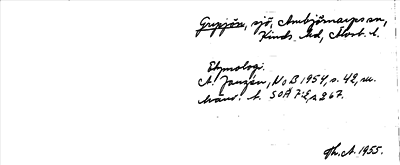 Grypjön, sjö, Ambjörnarps sn,
Kinds hd, Älvsb. l.
Etymologi.
A. Janzén, NoB 1954, s. 42, m.
hänv. t. SOÄ 7:2, s. 267.
Th. A. 1955.